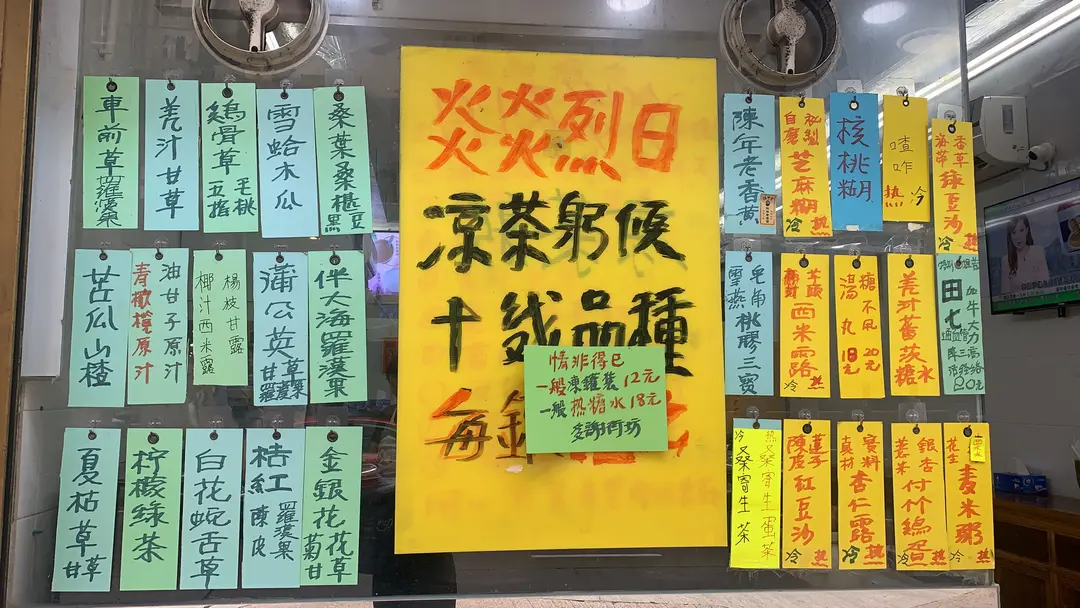 車前草 羅漢果
羌汁甘草
鷄骨草
五指
毛桃
雪蛤木瓜
桑葉桑椹
黑豆
苦瓜山楂
油甘子原汁
青橄欖原汁
楊枝甘露
椰汁西米露
蒲公英
甘草
羅漢果
伴大海羅漢果
夏枯草
甘草
柠檬綠茶
白花蛇舌草
桔紅
羅漢果
陳皮
金銀花
菊花
甘草
炎炎烈日
凉茶躬候
十几品種
每
情非得已
一般凍罐裝12元
一般热糖水18元
多謝街坊
陳年老香黄
秘製
自磨
芝麻糊
冷 热
核桃糊
喳咋
热 冷
香草
海帶
绿豆沙
冷 热
雪燕
皂角
桃膠三寶
西米露
冷 热
糖不甩
20元
湯丸
18元
羌汁蕃茨糖水
田七
加牛大力
热桑寄生蛋茶
冷桑寄生茶
蓮子
陳皮
紅豆沙
冷 热
真材
實料
杏仁露
冷 热
銀杏
薏米
付竹鷄蛋
冷 热
花生
麦米粥
冷 热